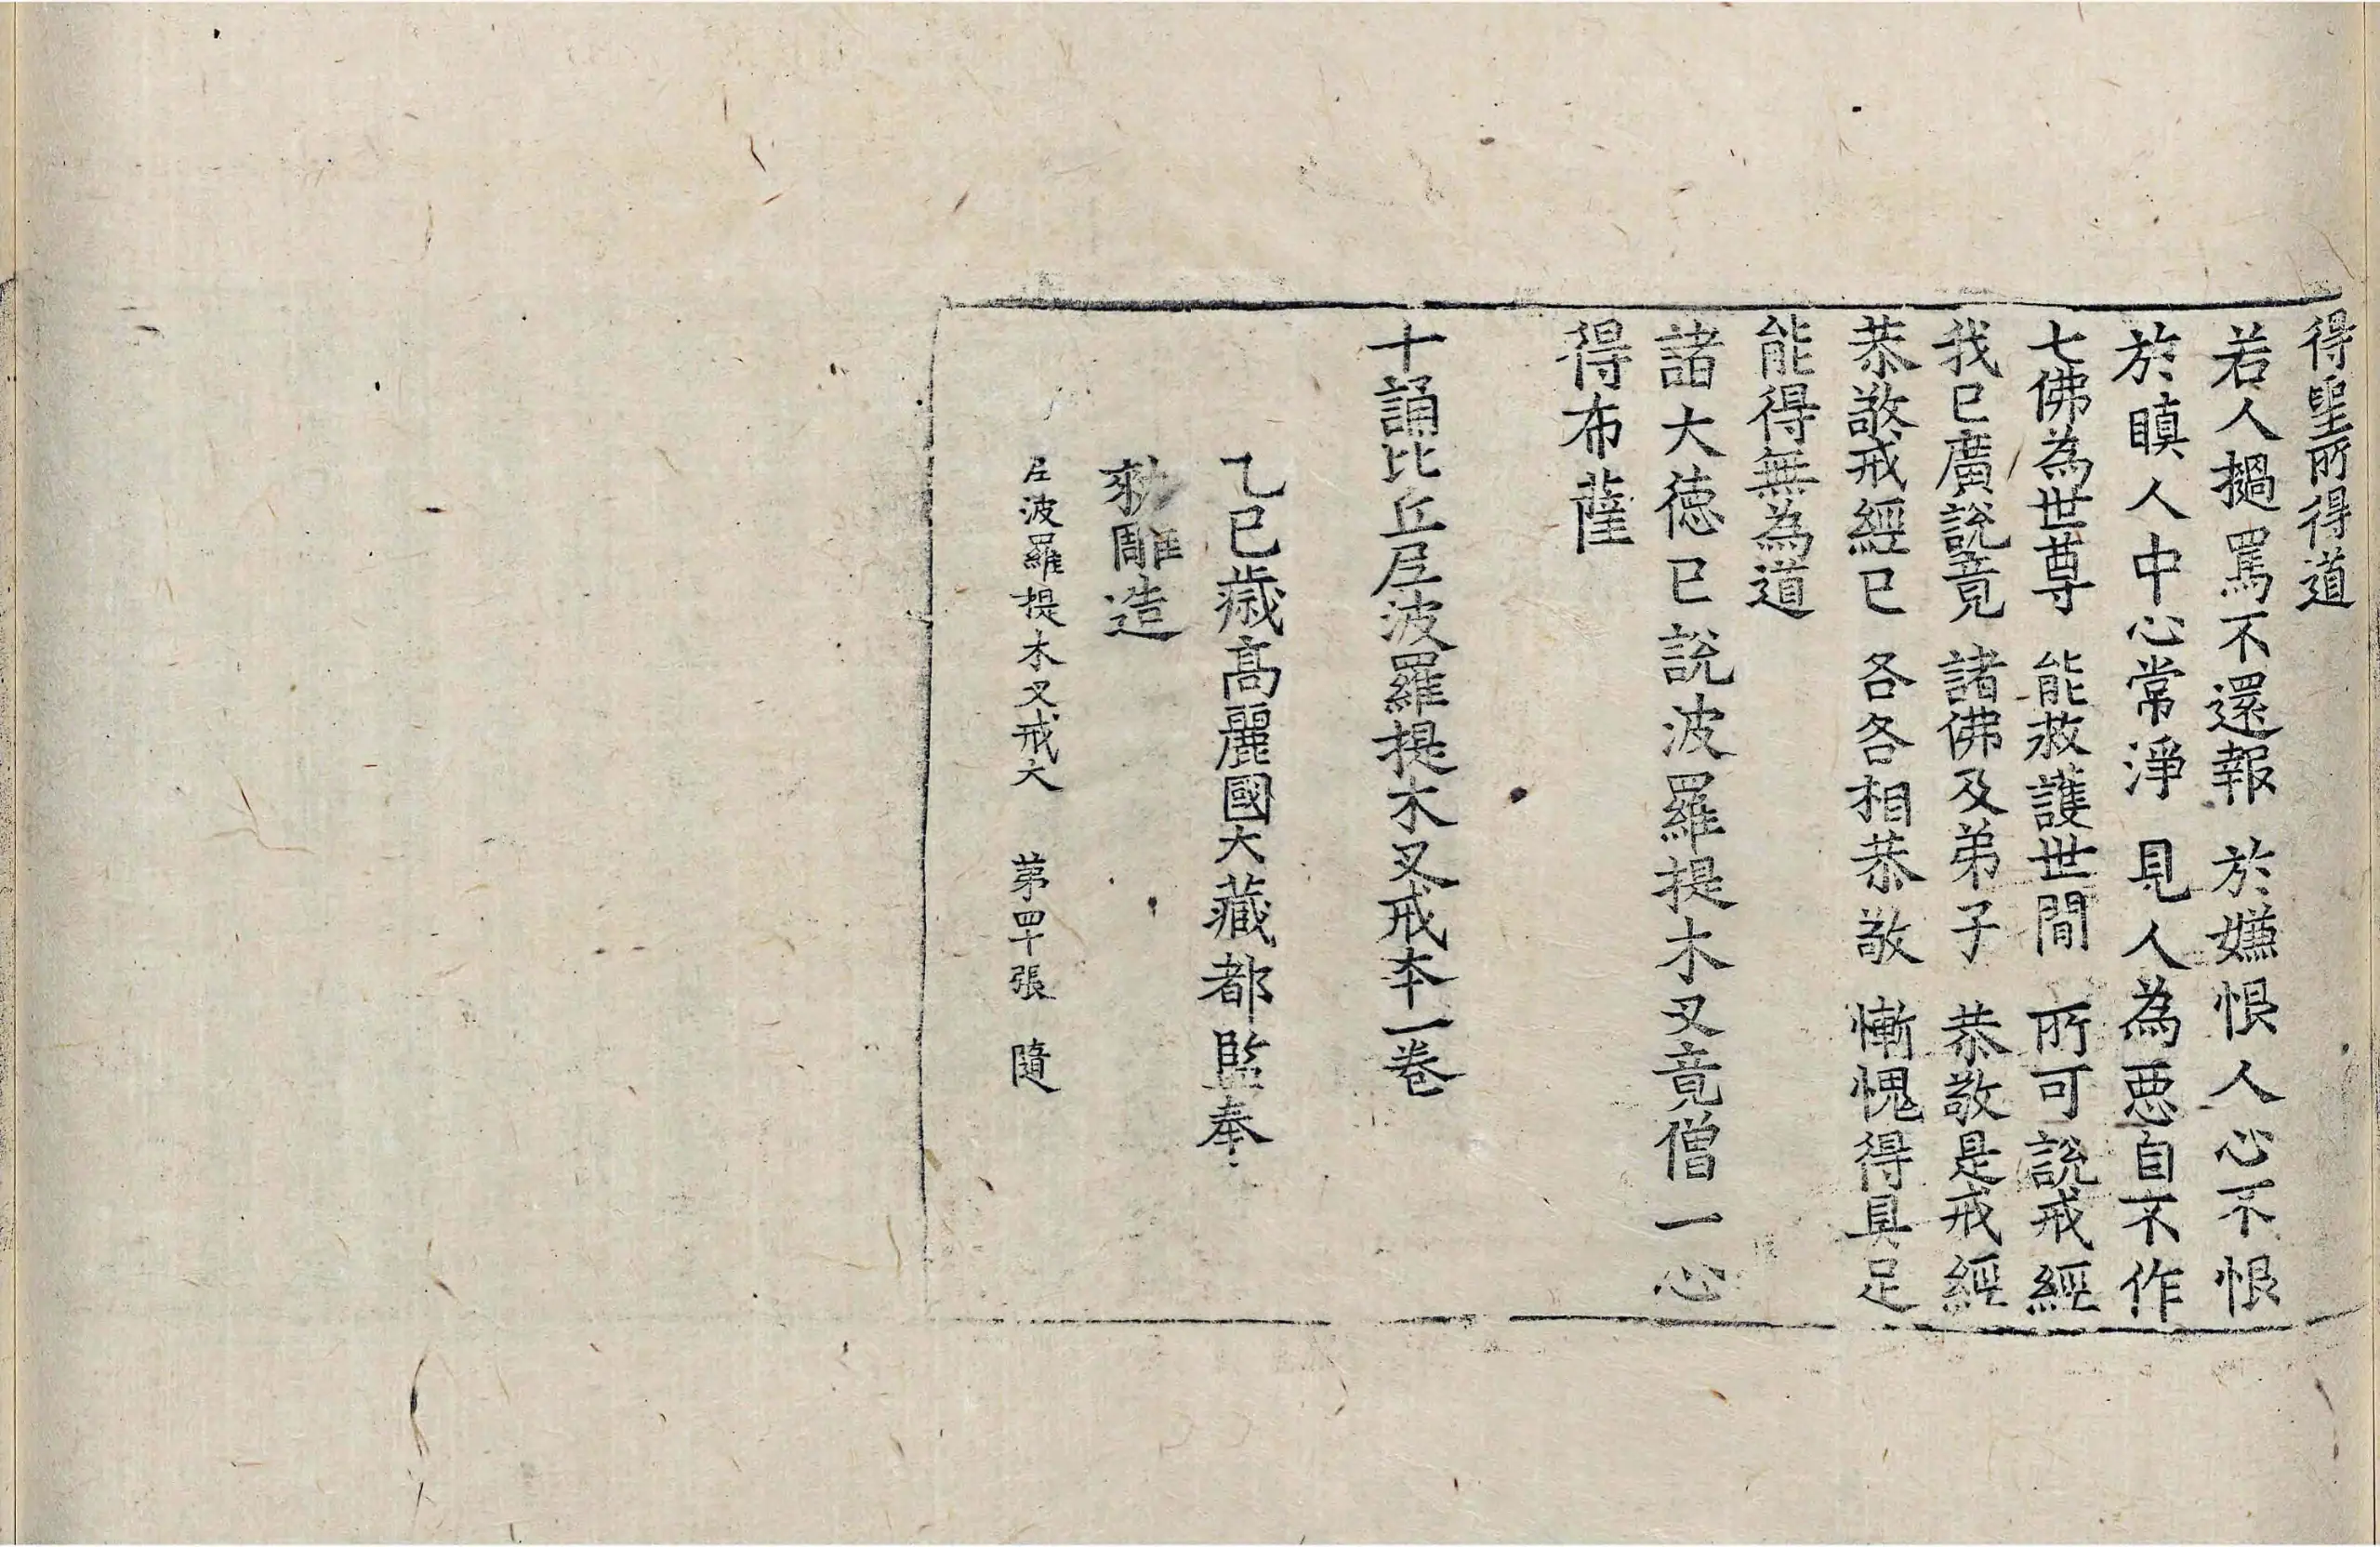 得聖所得道
若人撾罵不還報 於嫌恨人心不恨
於瞋人中心常淨 見人為惡自不作
七佛為世尊 能救護世間 所可說戒經
我已廣說竟 諸佛及弟子 恭敬是戒經
恭敬戒經已 各各相恭敬 慚愧得具足
能得無為道
諸大德已說波羅提木叉竟僧一心
得布薩
十誦比丘尼波羅提木叉戒本一卷
乙巳歲高麗國大藏都監奉
勑雕造
尼波羅提木叉戒大 第四十張 隨